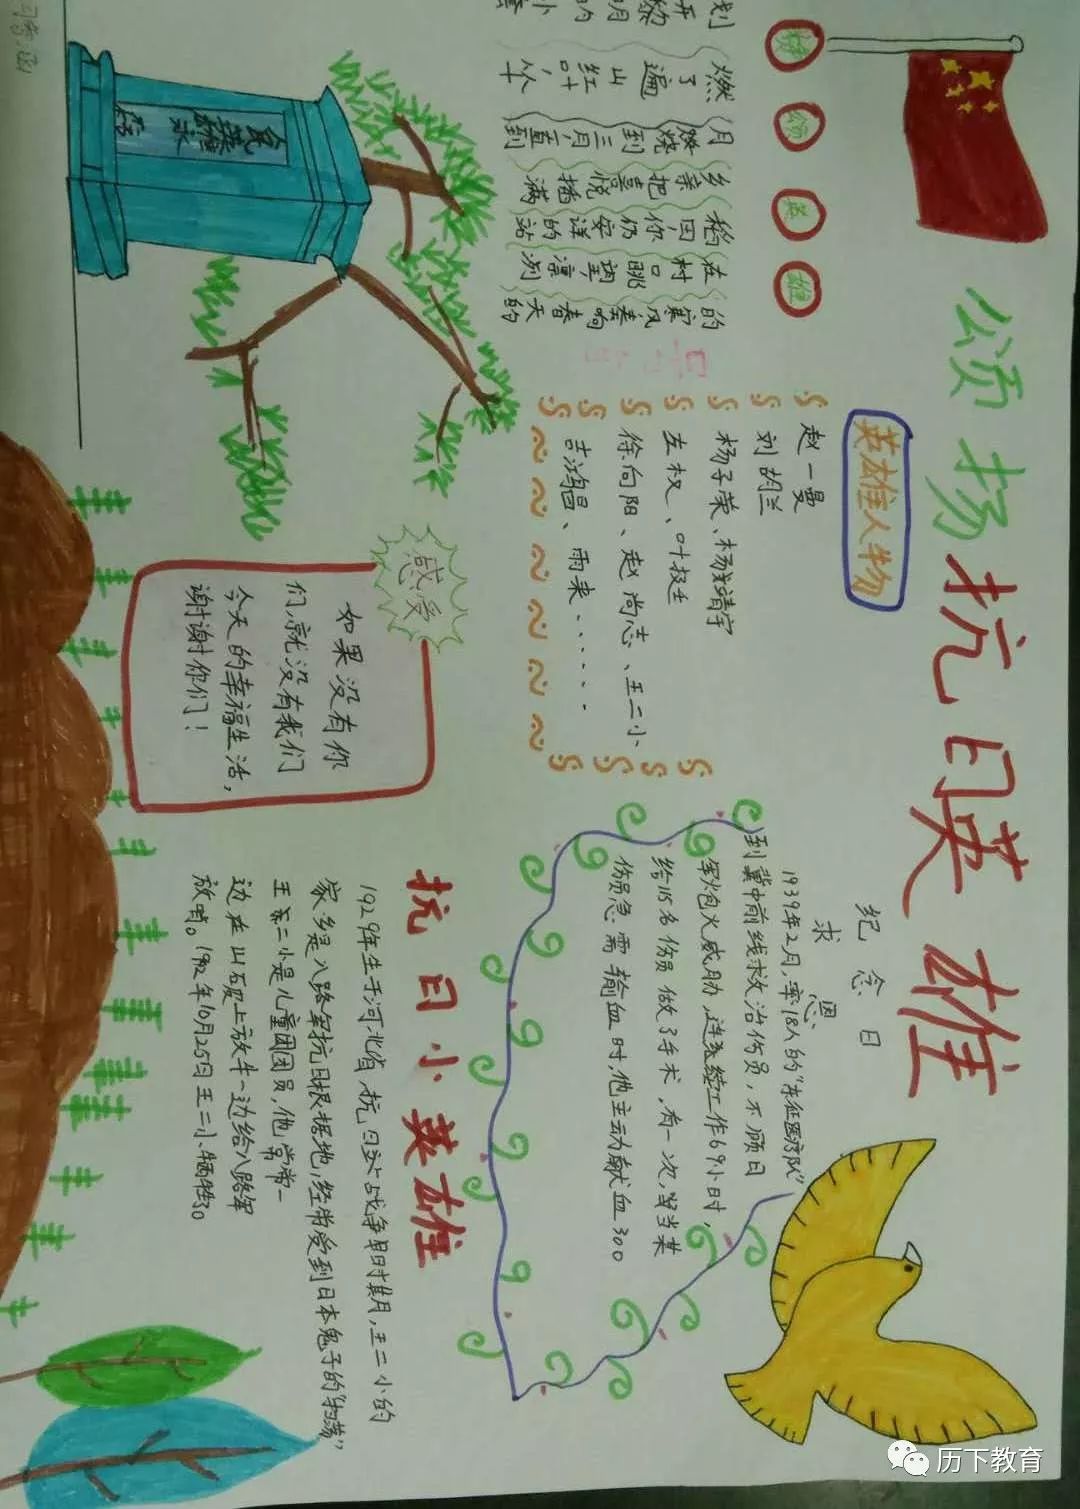 颂扬抗日英雄
颂 英 雄
划开黎明的小
燃了遍山红叶,
月燃烧到三月,直到
乡亲把喜悦插满
稻田,你仍安详的站
在村口眺望,凛冽
的寒风奏响春天的
英雄人物
赵一曼
刘胡兰
杨子荣、杨靖宇
左权、叶挺
徐向阳、赵尚志、王二小
吉鸿昌、雨来......
纪念日
求恩
1939年2月,率18人的“东征医疗队”
到冀中前线救治伤员,不顾日
军炮火威胁,连续工作69小时,
给115名伤员做了手术,有一次,当某
伤员急需输血时,他主动献血300
民英雄永
感受
如果没有你
们,就没有我们
今天的幸福生活,
谢谢你们!
抗日小英雄
1929年生于河北省,抗日战争早时期,王二小的
家乡是八路军抗日根据地,经常受到日本鬼子的“扫荡”
王二小是儿童团团员,他常常一
边在山坡上放牛一边给八路军
放哨。1942年10月25日王二小牺牲了。
历下教育